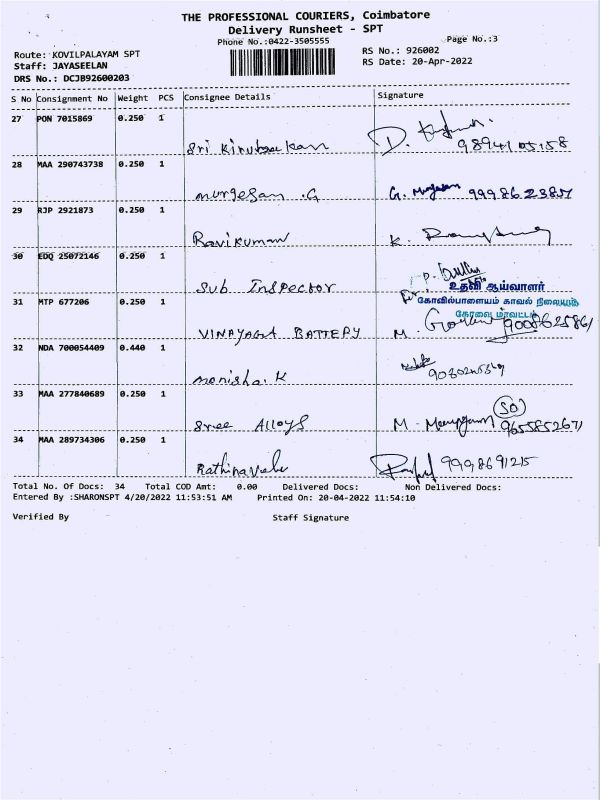 THE PROFESSIONAL COURIERS, Coimbatore
Delivery Runsheet - SPT
Phone No.:0422-3505555
Page No.:3
Route: KOVILPALAYAM SPT
RS No.: 926002
Staff: JAYASEELAN
RS Date: 20-Apr-2022
DRS No.: DCJB92600203
S No Consignment No Weight PCS Consignee Details Signature
27 PON 7015869 0.250 1 Sri D.
28 MAA 290743738 0.250 1 murgesan .G G. 9998623857
29 RJP 2921873 0.250 1 Ravikuman K.
30 EDQ 25072146 0.250 1 Sub Inspector P.
உதவி ஆய்வாளர்
கோவில்பாளையம் காவல் நிலையம்
கோவை மாவட்டம்
31 MTP 677206 0.250 1 VINAYAGA BATTERY M.
32 NDA 700054409 0.440 1 monisha.K
33 MAA 277840689 0.250 1 Sree Alloys M. 9655852671
34 MAA 289734306 0.250 1 Rathinavelu 9998691215
Total No. Of Docs: 34 Total COD Amt: 0.00 Delivered Docs: Non Delivered Docs:
Entered By :SHARONSPT 4/20/2022 11:53:51 AM Printed On: 20-04-2022 11:54:10
Verified By Staff Signature